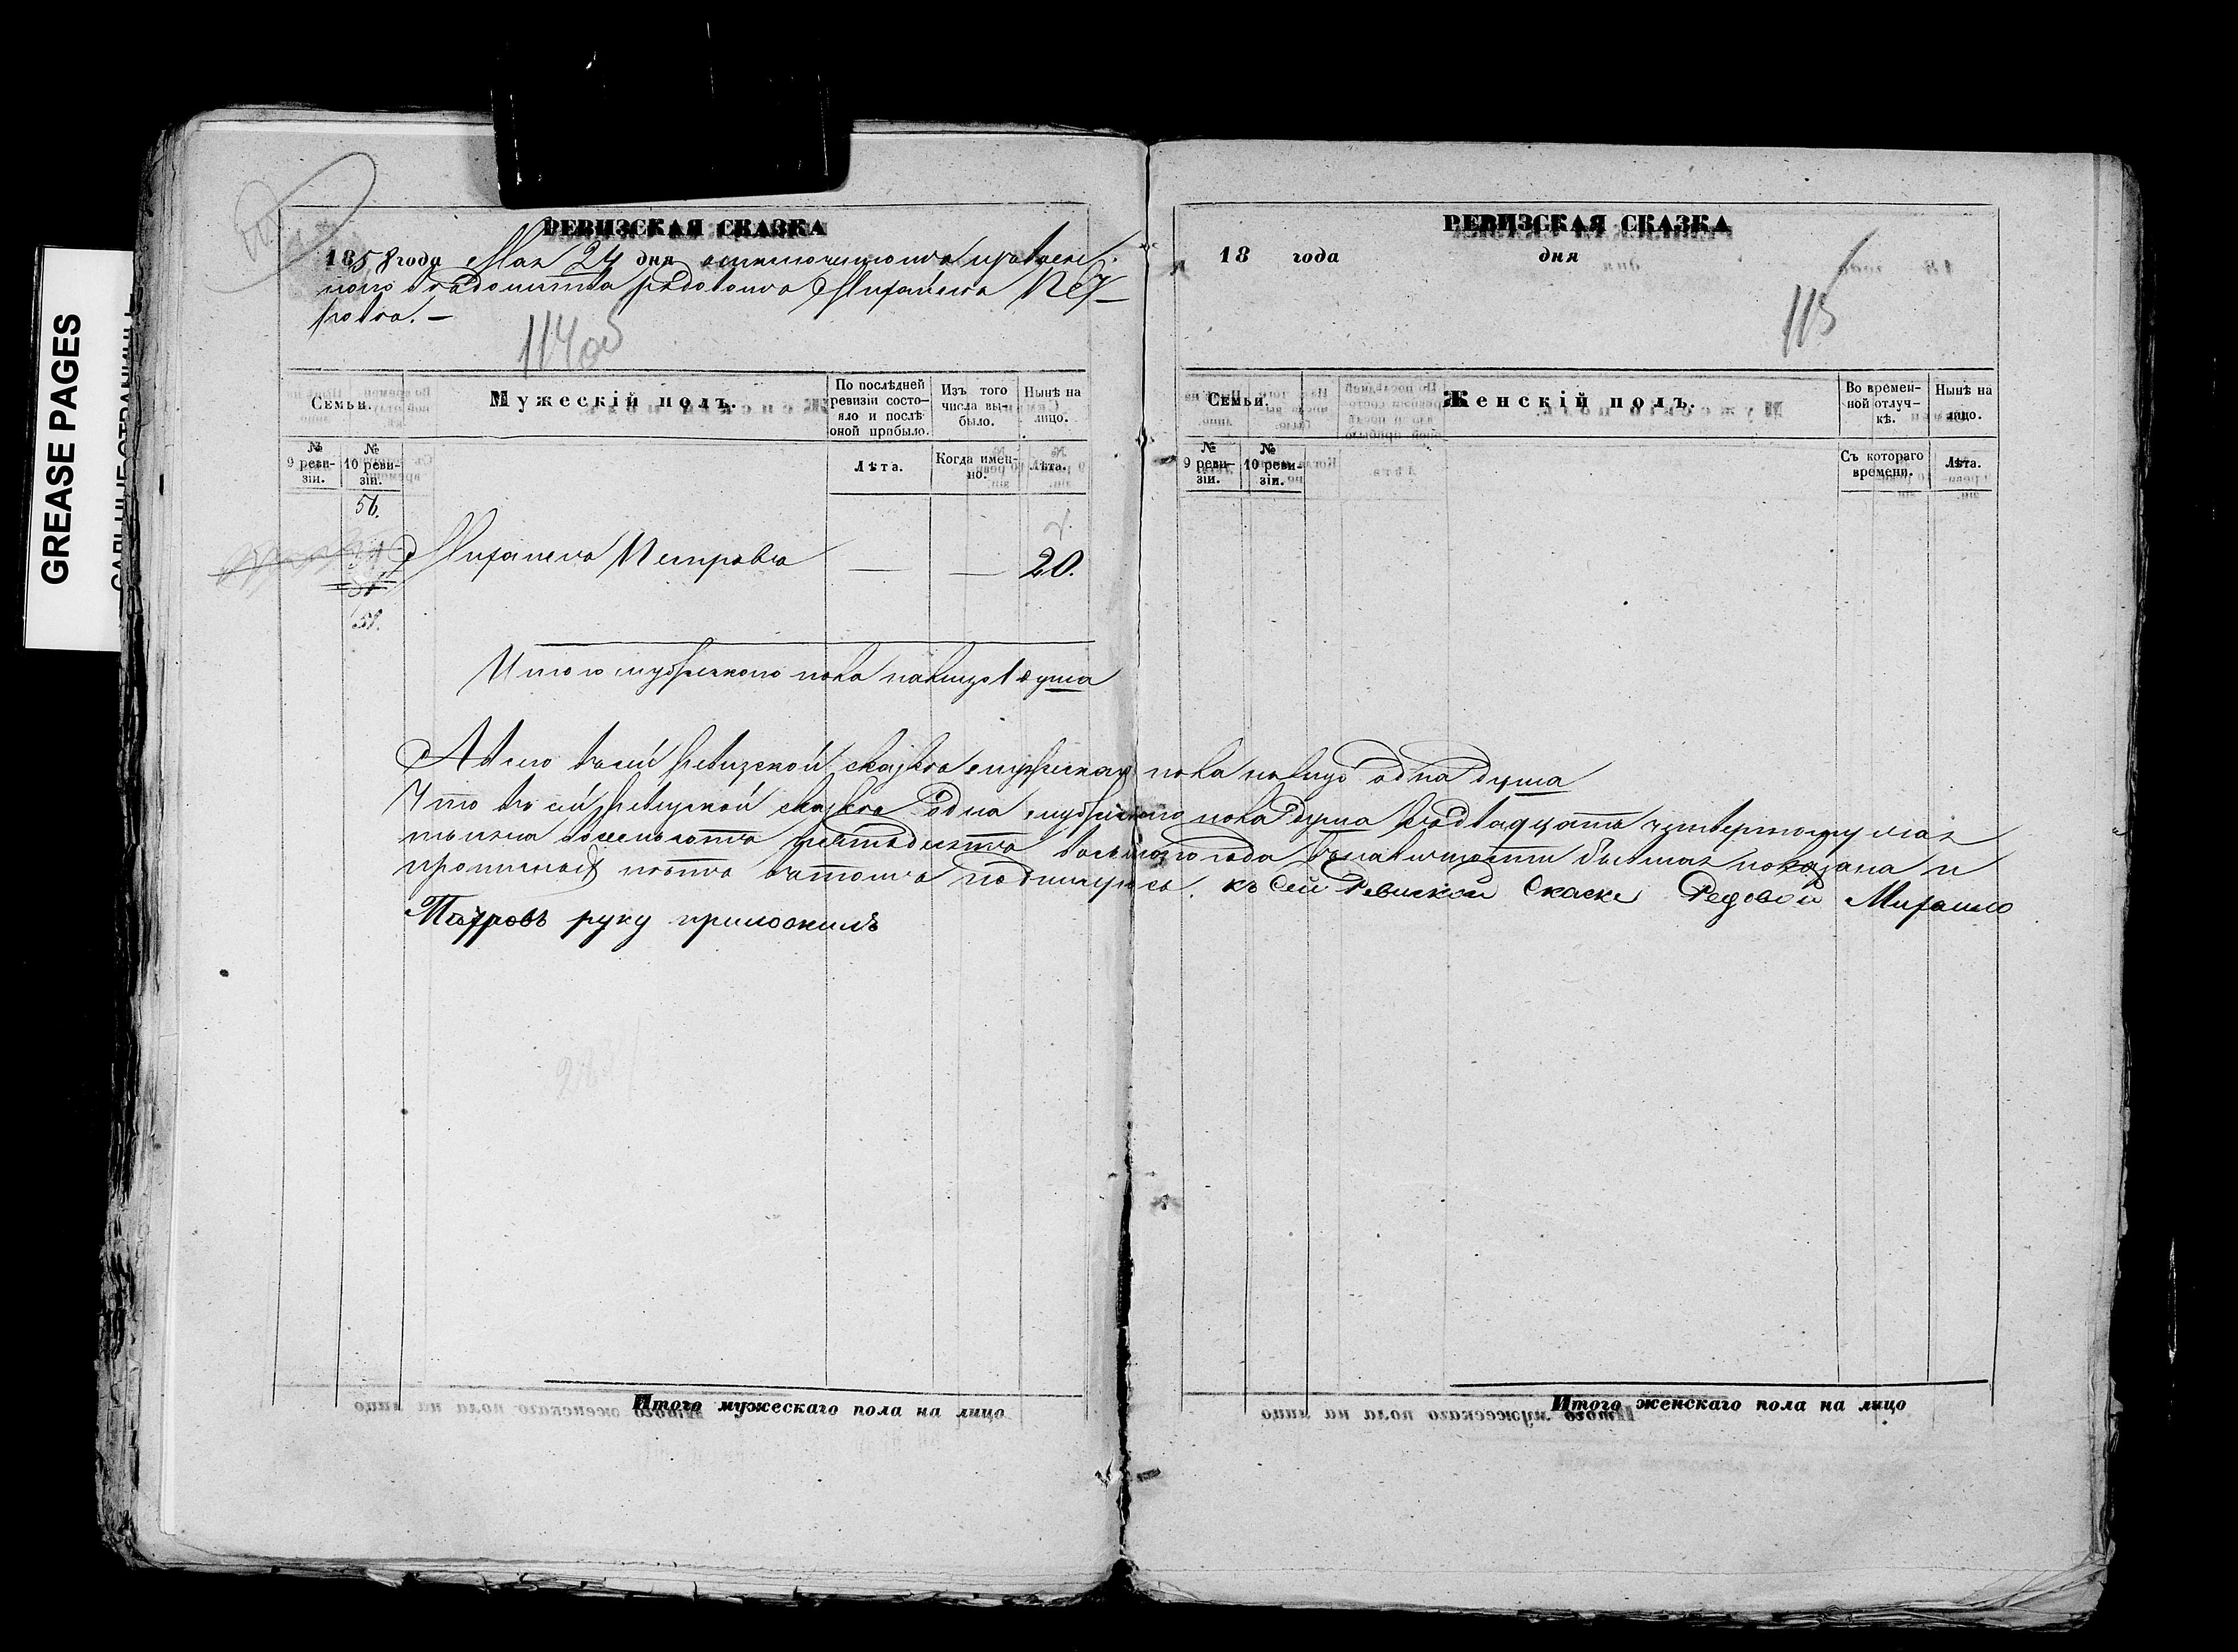 GREASE PAGES
РЕВИЗСКАЯ СКАЗКА
1858 года Мая 24 дня
рядоваго Михайла Пет-
рова. –
114об
Семьи.
Мужескій полъ.
По послѣдней ревизіи состо-яло и послѣ оной прибыло.
Изъ того числа вы-было.
Нынѣ на лицо.
№ 9 реви-зіи.
№ 10 реви-зіи.
Лѣта.
Когда имен-но.
Лѣта.
56.
Михаилъ Петровъ — — 20.
Итого мужескаго пола налицо 1 душа
А всего въ сей ревизской сказкѣ мужескаго пола налицо одна душа
Что въ сей ревизской сказкѣ одна мужескаго пола душа двадцать четвертому мая
тысяча восемьсотъ пятьдесятъ восьмого года въ наличности бывшая показана и
прописной нѣтъ въ томъ подпишусь. къ Сей Ревиской Скаске Редовой Михаило
Петровъ руку приложилъ
Итого мужескаго пола на лицо
РЕВИЗСКАЯ СКАЗКА
18 года дня
115
Семьи.
Женскій полъ.
Во времен-ной отлуч-кѣ.
Нынѣ на лицо.
№ 9 реви-зіи.
№ 10 реви-зіи.
Съ котораго времени.
Лѣта.
Итого женскаго пола на лицо